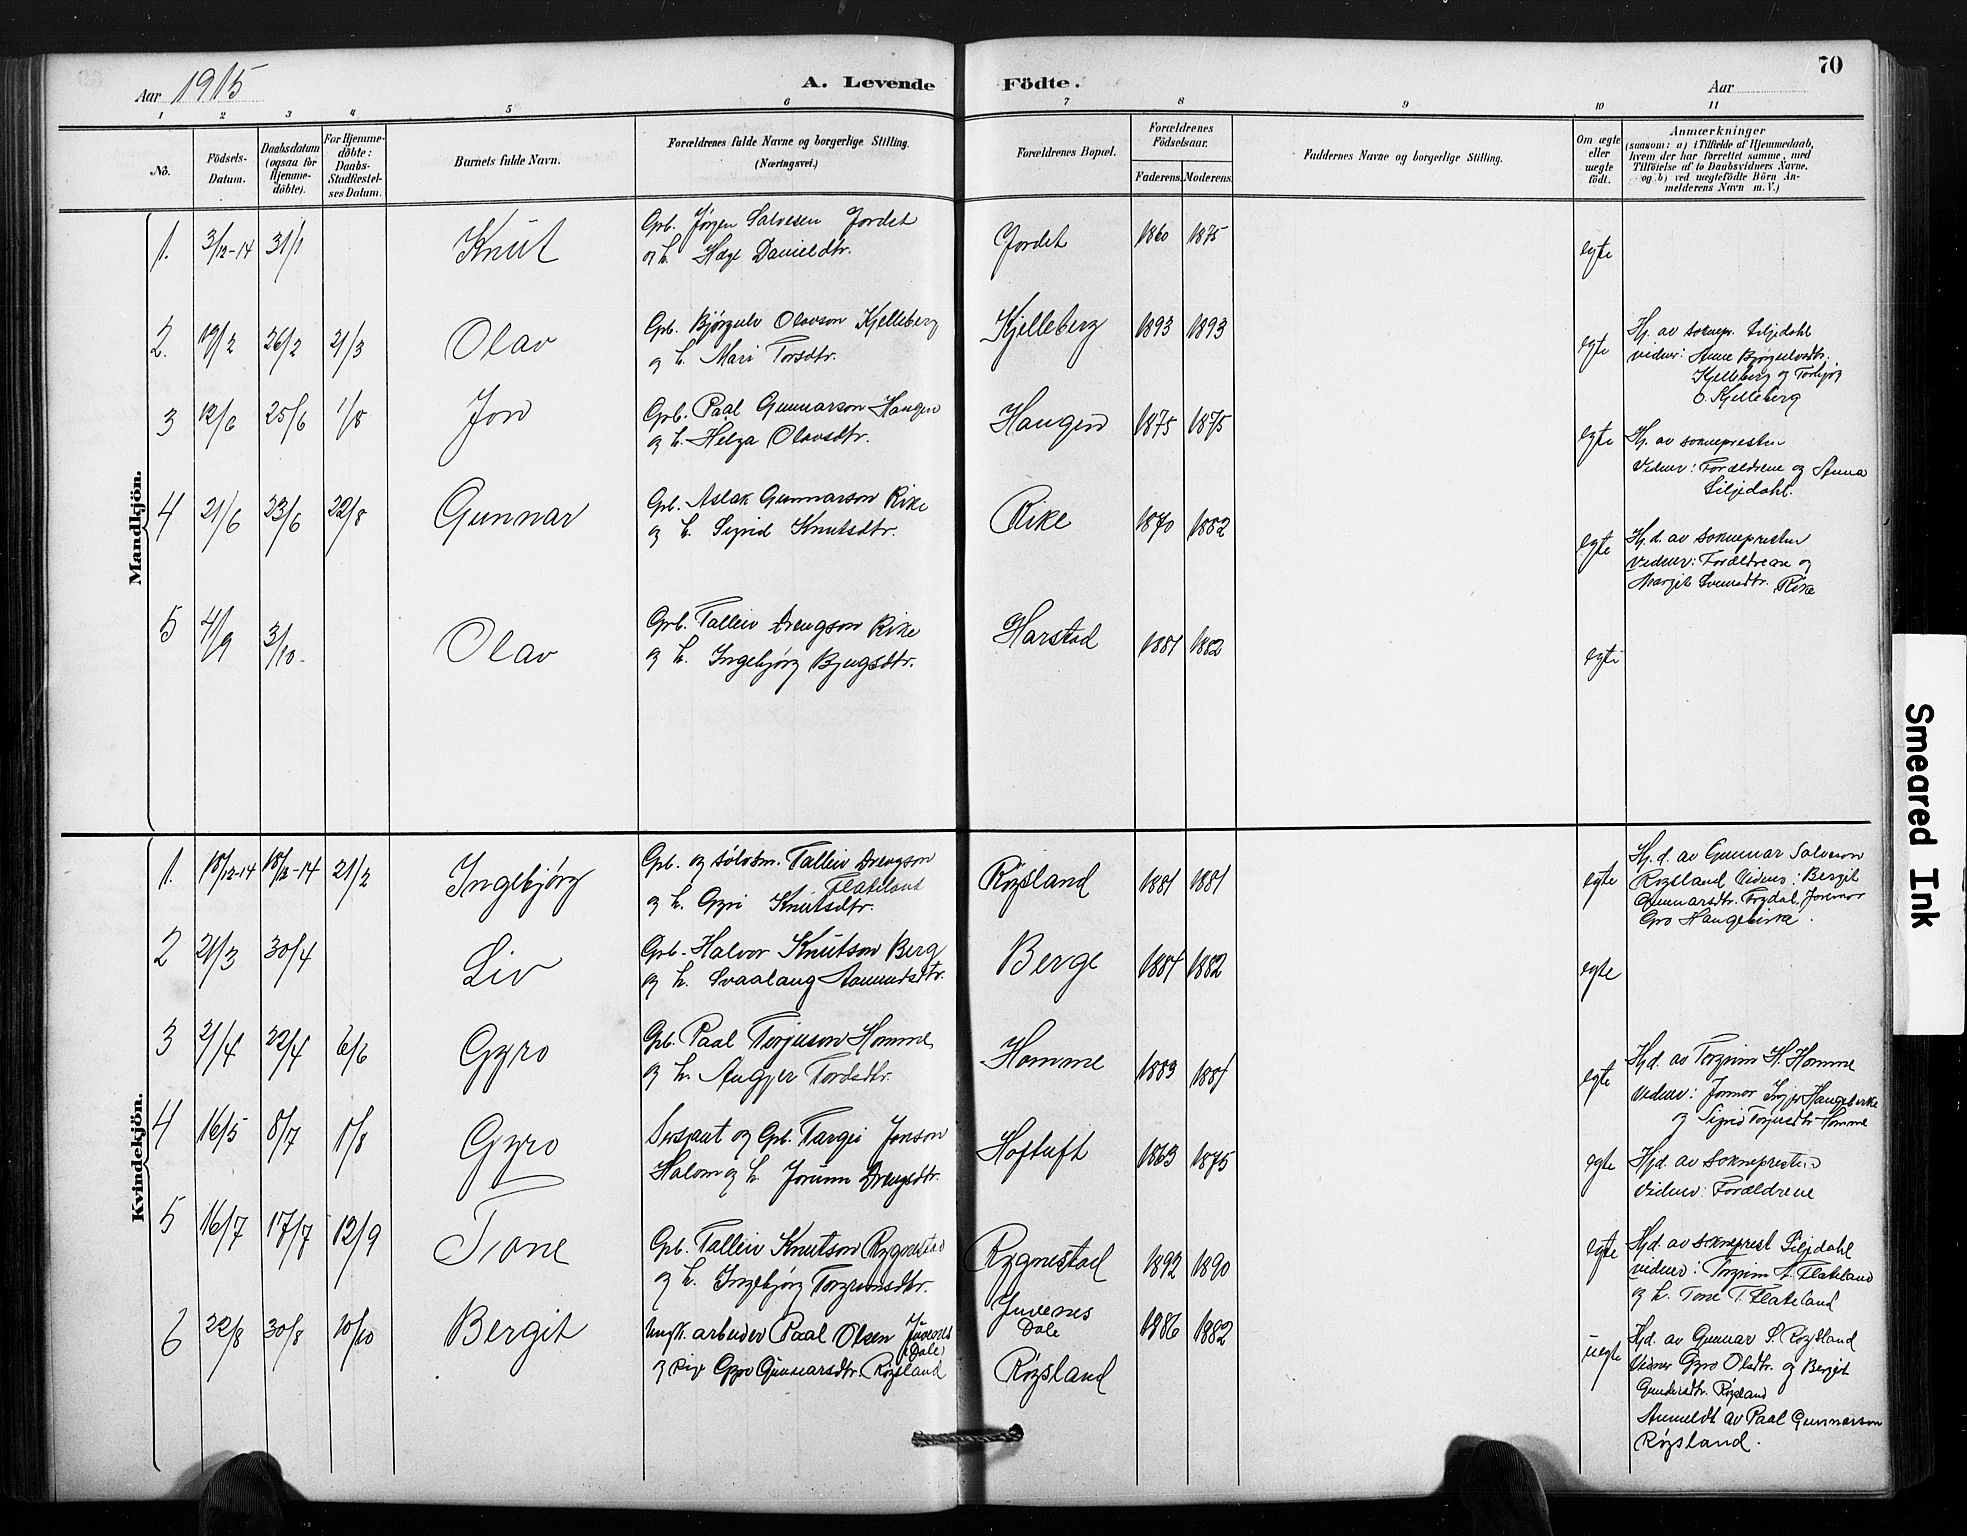 70
Aar 1915
A. Levende Födte.
Aar
1 2 3 4 5 6 7 8 9 10 11
No.
Födsels-
Datum.
Daabsdatum
(ogsaa for
Hjemme-
döbte).
For Hjemme-
döbte:
Daabs-
Stadfæstel-
ses Datum.
Barnets fulde Navn.
Forældrenes fulde Navne og borgerlige Stilling.
(Næringsvei.)
Forældrenes Bopæl.
Forældrenes
Födselsaar.
Faderens. Moderens.
Faddernes Navne og borgerlige Stilling.
Om ægte
eller
uægte
födt.
Anmærkninger
(saasom: a) i Tilfælde af Hjemmedaab,
hvem der har forrettet samme, med
Tilföielse af to Daabsvidners Navne,
og b) ved uægtefödte Börn An-
melderens Navn m. V.)
Mandkjön.
1. 3/12-14 31/1 Knut
Grb. Jørgen Salvesen Jordet
og h. Hæge Danieldtr.
Jordet 1860 1875 egte
2. 19/2 26/2 21/3 Olav
Grb. Bjørgulv Olavson Kjelleberg
og h. Mari Torsdtr.
Kjelleberg 1893 1893 egte
Hj. av soknepr. Liljedahl
vidner: Anne Bjørgulvsdtr.
Kjelleberg og Torbjørg
O. Kjelleberg
3 12/6 25/6 1/8 Jon
Grb. Paal Gunnarson Haugen
og h. Helga Olavsdtr.
Haugen 1875 1875 egte
Hj. av soknepresten
Vidner: Forældrene og Anna
Liljedahl.
4 21/6 23/6 22/8 Gunnar
Grb. Aslak Gunnarson Rike
og h. Sigrid Knutsdtr.
Rike 1870 1882 egte
Hj.d. av soknepresten
vidner: Forældrene og
Margit Svensdtr. Rike
5 4/9 3/10. Olav
Grb. Talleiv Drengson Rike
og h. Ingebjørg Bjugsdtr.
Harstad 1881 1882 egte
Kvindekjön.
1. 18/12-14 18/12-14 21/2 Ingebjørg
Grb. og sølvsm. Talleiv Drengson
Flateland
og h. Gyri Knutsdtr.
Røysland 1881 1881 egte
Hj.d. av Gunnar Salveson
Røysland Vidner: Bergit
Gunnarsdtr. Frødal, Jormor
Gro Haugebirke.
2 21/3 30/4 Liv
Grb. Halvor Knutson Berg
og h. Svaalaug Aamundsdtr.
Berge 1881 1882 egte
3 2/4 22/4 6/6 Gyro
Grb. Paal Torjuson Homme
og h. Angjer Tordsdtr.
Homme 1883 1881 egte
Hjd. av Torgrim H. Homme
vidner: Jormor Haugebirke
og Sigrid Torjusdtr. Homme
4 16/5 8/7 1/8 Gyro
Sersjant og Grb. Targei Jonson
Halom og h. Jorunn Drengsdtr.
Hoftuft 1863 1875 egte
Hjd. av soknepresten
vidner: Forældrene
5 16/7 17/7 12/9 Tone
Grb. Talleiv Knutson Rygnestad
og h. Ingebjørg Torgrimsdtr.
Rygnestad 1892 1890 egte
Hjd. av sokneprest Liljedahl
vidner: Torgrim T. Flateland
og h. Tone T. Flateland
6 22/8 30/8 10/10 Bergit
Ungk. arbeider Paal Olsen Juvenes
(Dale)
og pige Gyro Gunnarsdtr. Røysland
Juvenes
Dale
Røysland
1886 1882 uegte
Hjd. av Gunnar S. Røysland
vidner Gyro Olsdtr. og Bergit
Gundersdtr. Røysland
Anmeldt av Paal Gunnarson
Røysland.
Smeared Ink